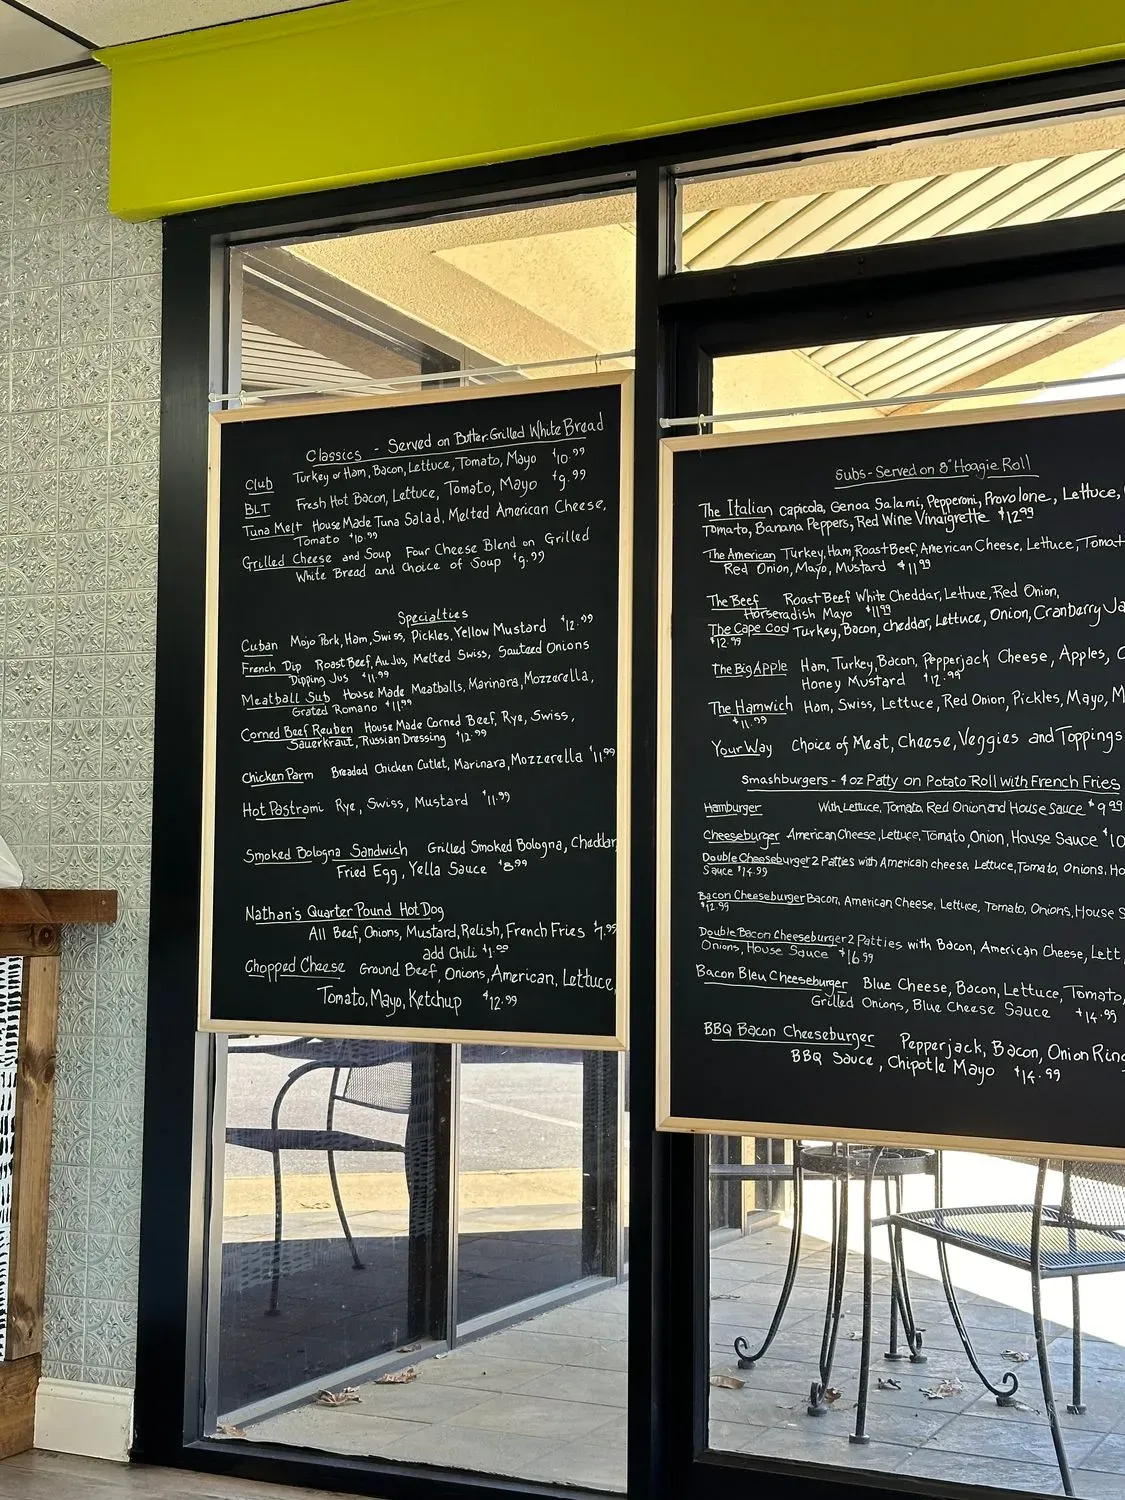 Classics - Served on Butter-Grilled White Bread
Club Turkey or Ham, Bacon, Lettuce, Tomato, Mayo $10.99
BLT Fresh Hot Bacon, Lettuce, Tomato, Mayo $9.99
Tuna Melt House Made Tuna Salad, Melted American Cheese,
Tomato $10.99
Grilled Cheese and Soup Four Cheese Blend on Grilled
White Bread and Choice of Soup $9.99
Specialties
Cuban Mojo Pork, Ham, Swiss, Pickles, Yellow Mustard $12.99
French Dip Roast Beef, Au Jus, Melted Swiss, Sauteed Onions
Dipping Jus $11.99
Meatball Sub House Made Meatballs, Marinara, Mozzarella,
Grated Romano $11.99
Corned Beef Reuben House Made Corned Beef, Rye, Swiss,
Sauerkraut, Russian Dressing $12.99
Chicken Parm Breaded Chicken Cutlet, Marinara, Mozzerella $11.99
Hot Pastrami Rye, Swiss, Mustard $11.99
Smoked Bologna Sandwich Grilled Smoked Bologna, Cheddar,
Fried Egg, Yella Sauce $8.99
Nathan's Quarter Pound Hot Dog
All Beef, Onions, Mustard, Relish, French Fries $7.95
add Chili $1.00
Chopped Cheese Ground Beef, Onions, American, Lettuce,
Tomato, Mayo, Ketchup $12.99
Subs - Served on 8" Hoagie Roll
The Italian Capicola, Genoa Salami, Pepperoni, Provolone, Lettuce,
Tomato, Banana Peppers, Red Wine Vinaigrette $12.99
The American Turkey, Ham, Roast Beef, American Cheese, Lettuce, Tomat
Red Onion, Mayo, Mustard $11.99
The Beef Roast Beef White Cheddar, Lettuce, Red Onion,
Horseradish Mayo $11.99
The Cape Cod Turkey, Bacon, cheddar, Lettuce, Onion, Cranberry Ja
$12.99
The Big Apple Ham, Turkey, Bacon, Pepperjack Cheese, Apples,
Honey Mustard $12.99
The Hamwich Ham, Swiss, Lettuce, Red Onion, Pickles, Mayo, M
$11.99
Your Way Choice of Meat, Cheese, Veggies and Toppings
Smashburgers - 4 oz Patty on Potato Roll with French Fries
Hamburger With Lettuce, Tomato, Red Onion and House Sauce $9.99
Cheeseburger American Cheese, Lettuce, Tomato, Onion, House Sauce $10
Double Cheeseburger 2 Patties with American cheese, Lettuce, Tomato, Onions, Ho
Sauce $14.99
Bacon Cheeseburger Bacon, American Cheese, Lettuce, Tomato, Onions, House S
$12.99
Double Bacon Cheeseburger 2 Patties with Bacon, American Cheese, Lett
Onions, House Sauce $16.99
Bacon Bleu Cheeseburger Blue Cheese, Bacon, Lettuce, Tomato,
Grilled Onions, Blue Cheese Sauce $14.99
BBQ Bacon Cheeseburger Pepperjack, Bacon, Onion Ring
BBQ Sauce, Chipotle Mayo $14.99